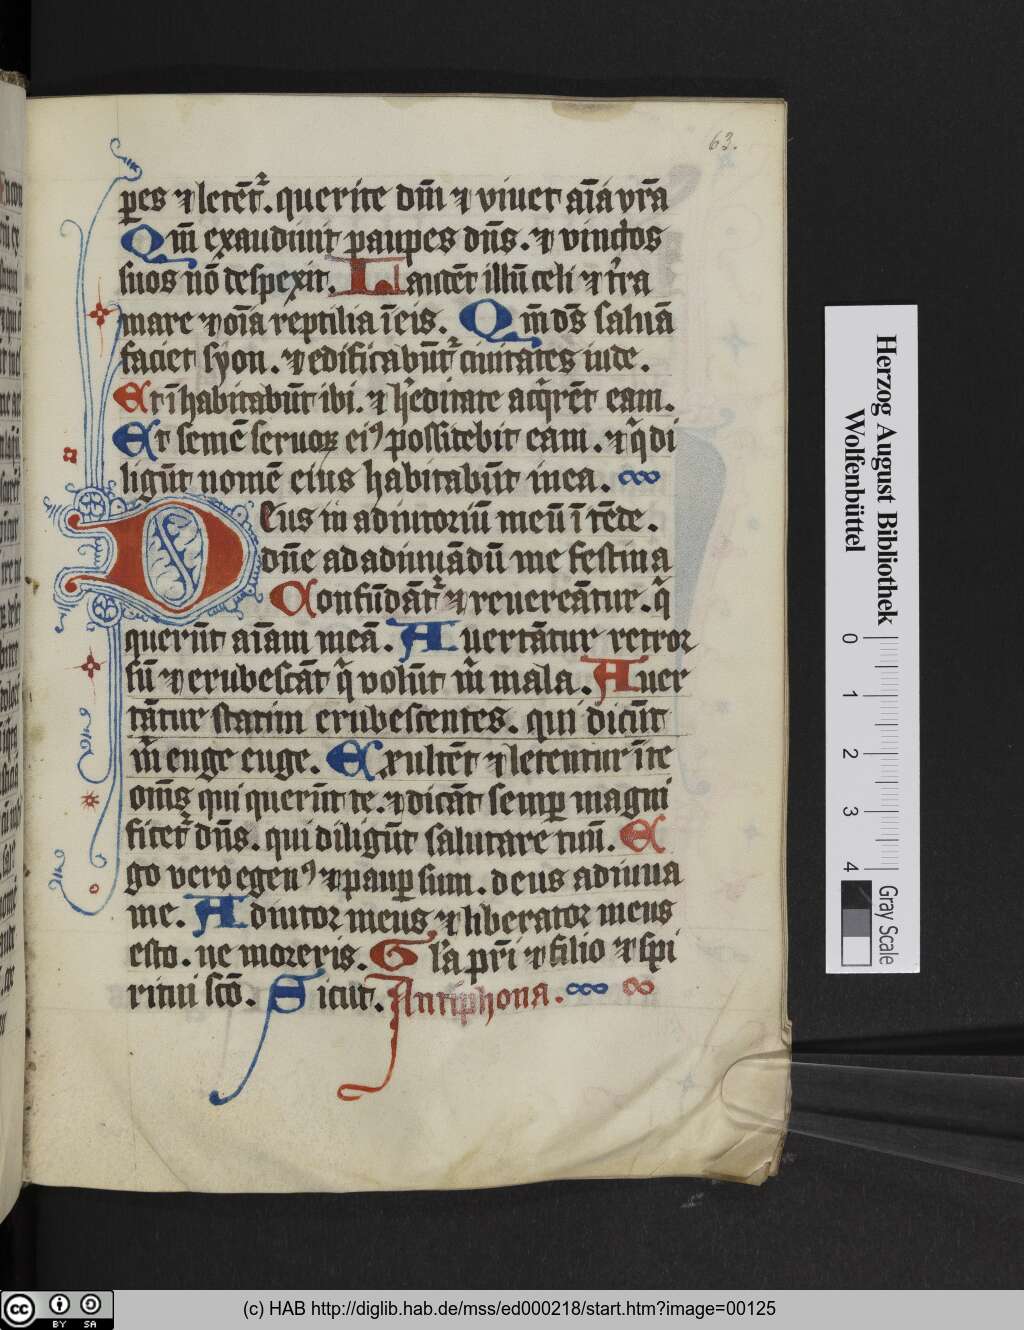 63.
p̱es ⁊ letẽt᷑. querite dm̃ ⁊ viuet aĩa vr̃a
Qm̃ exaudiuit pauꝑes dñs. ⁊ vinctos
suos nõ despexit. Laudẽt illũ celi ⁊ t᷑ra
mare ⁊ oĩa reptilia ĩ eis. Qm̃ ds̃ saluã
faciet syon. ⁊ edificabũt᷑ ciuitates iude.
Et ĩhabitabũt ibi. ⁊ h᷑editate acq̃rẽt eam.
Et semẽ seruoꝝ eiꝰ possidebit eam. ⁊ q̃ di
ligũt nomẽ eius habitabũt in ea.
Deus in adiutoriũ meũ ĩtẽde.
dñe ad adiuuãdũ me festina
Confũdãt᷑ ⁊ reuereãtur. q̃
querũt aĩam meã. Auertãtur retror
sũ ⁊ erubescãt q̃ volũt m̃ mala. Auer
tãtur statim erubescentes. qui dicũt
m̃ euge euge. Exultẽt ⁊ letentur ĩ te
om̃s qui querũt te. ⁊ dicãt semꝑ magni
ficet᷑ dñs. qui diligũt salutare tuũ. E
go vero egenꝰ ⁊ pauꝑ sum. deus adiuua
me. Adiutor meus ⁊ liberator meus
esto. ne moreris. Gl̃a pr̃i ⁊ filio ⁊ spi
ritui scõ. Sicut. Antiphona.
Herzog August Bibliothek
Wolfenbüttel
0 1 2 3 4
Gray Scale
cc BY SA
(c) HAB http://diglib.hab.de/mss/ed000218/start.htm?image=00125